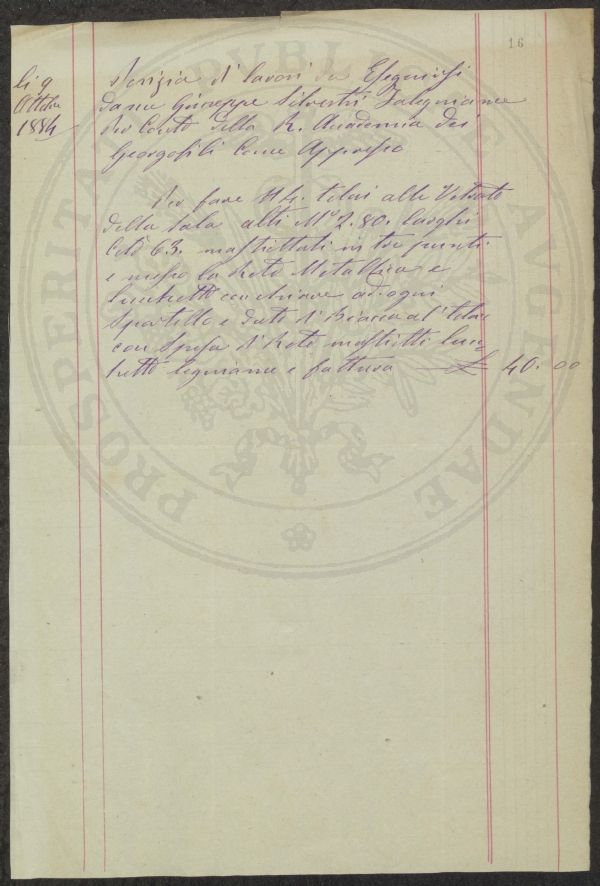 16
li 9
Ottobre
1884
Perizia di lavori da Eseguirsi
da me Giuseppe Silvestri Falegniame
Per Conto della R. Accademia dei
Georgofili Come Appresso
Per fare N 4. telai alle Vetrate
della Sala alti Mi 2.80. larghi
Cti 63. mastiettati in tre punti
e messo la Rete Metallica e
Lucchetto con chiave ad ogni
Sportello e dato di Biacca al telai
con Spesa di Rete mastietti Luc
chetto legniame e fattura £ 40.00
PROSPERITATI PUBLICAE AUGENDAE